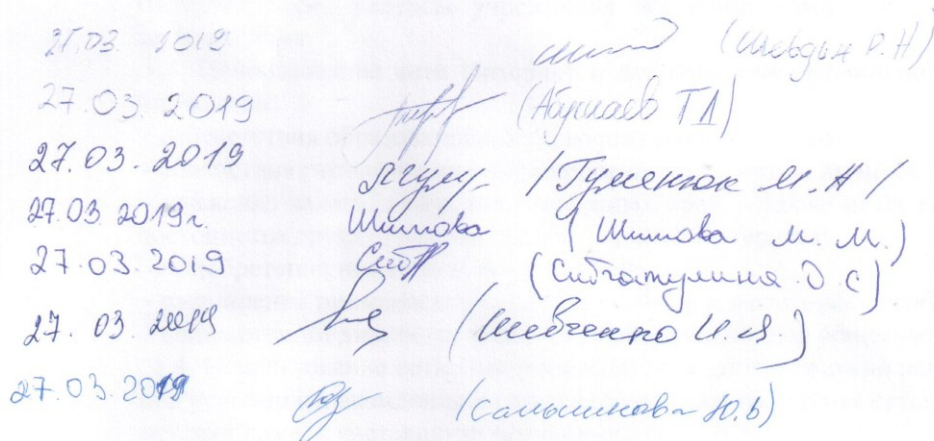 27.03 2019 (Шевдын Р.Н)
27.03.2019 (Абушаев Т.А)
27.03.2019 /Гуменюк М.А/
27.03 2019г. Шипова (Шипова М.М.)
27.03 2019 (Сибгатулина О.С)
27.03 2019 (Шевченко И.Я)
27.03.2019 (Санышкова Ю.В)